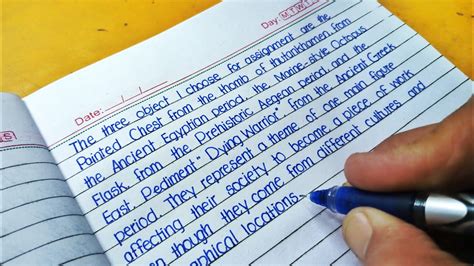 Day: M T W T
Date: / /
The three object I choose for assignment are the
Painted Chest from the thomb of thutankhamen, from
the Ancient Egyption period, the Marine-style Octopus
Flask, from the Prehistoric Aegean period, and the
East Pediment "Dying Warrior", from the Ancient Greek
period. They represent a theme of one main figure
affecting their society to become a piece of work
though they come from different cultures and
locations.